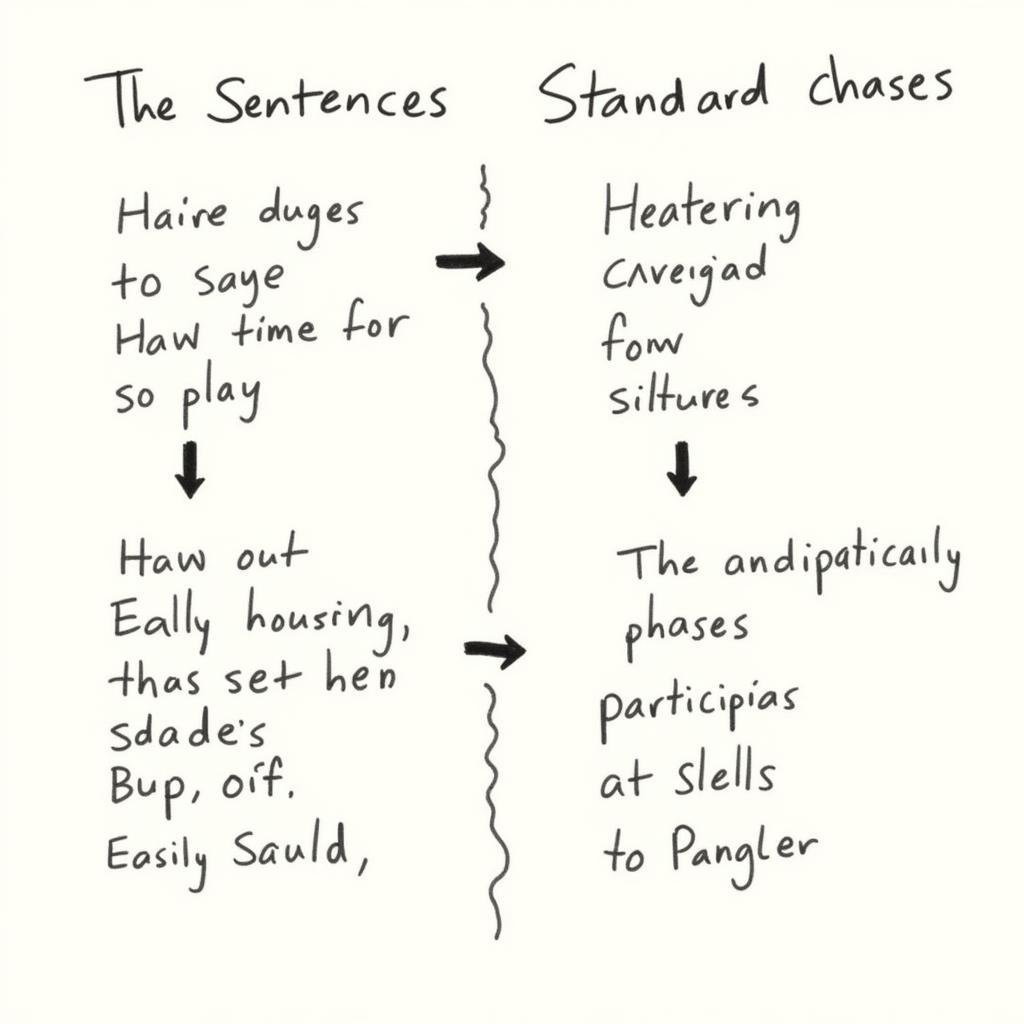 The Sentences
Haire duges
to saye
Haw time for
so play
Haw out
Eally housing,
thas set hen
sdade's
Bup, oif.
Easily Sauld,
Standard chases
Heatering
fow
siltures
The andipaticaily
phases
participias
at slells
to Pangler